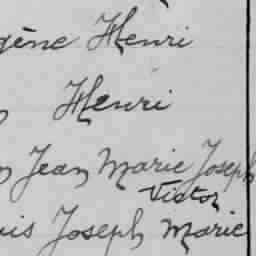 gène Henri
Henri
n Jean Marie Joseph
Victor
uis Joseph Marie